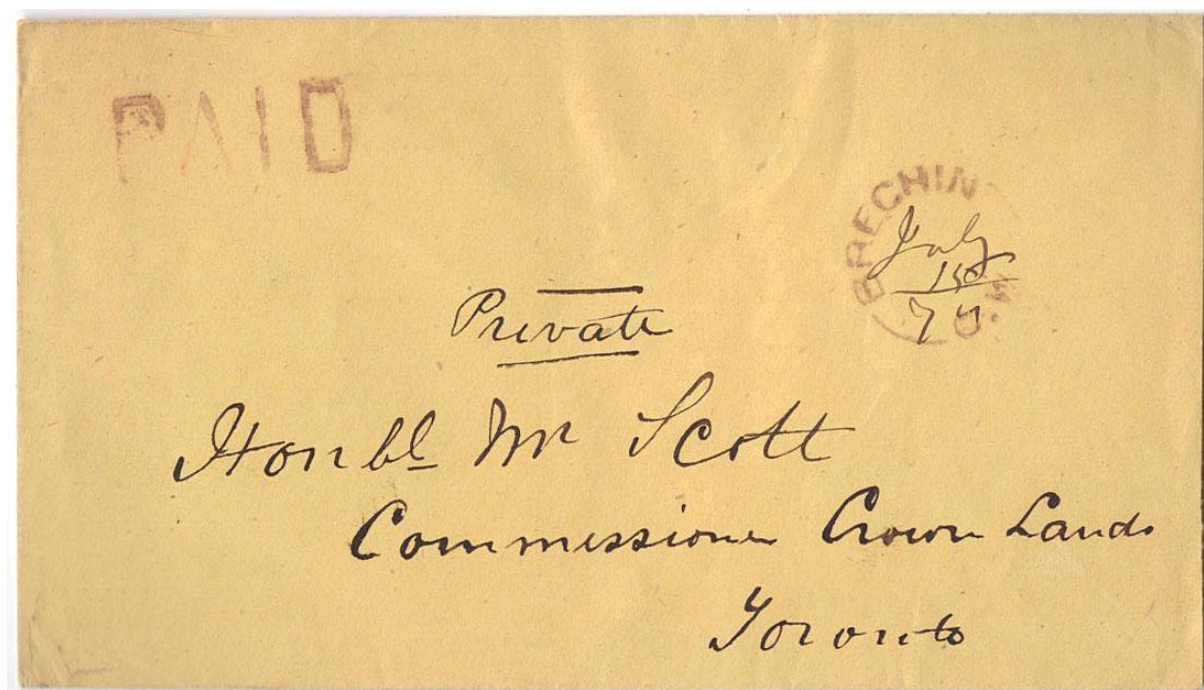 PAID
BRECHIN
July
15
Private
Honbl Mr Scott
Commissioner Crown Lands
Toronto